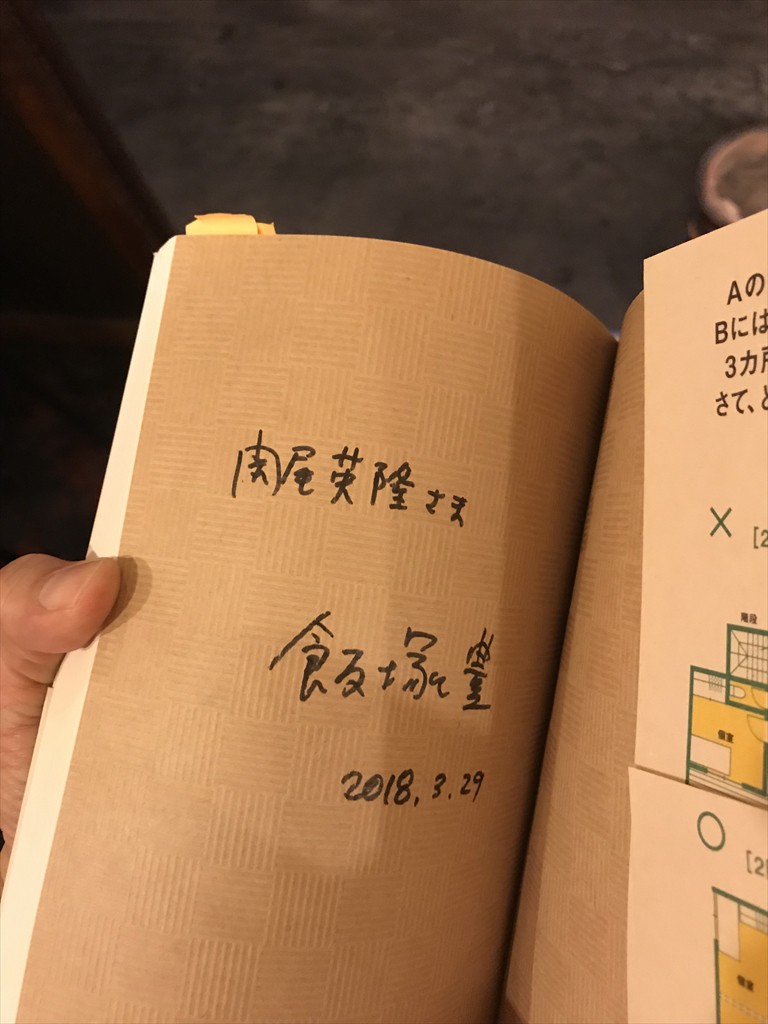 関尾英隆さま
飯塚豊
2018.3.29
Aの
Bには
3カ所
さて、と
×
[2
階段
個室
○
[2
個室